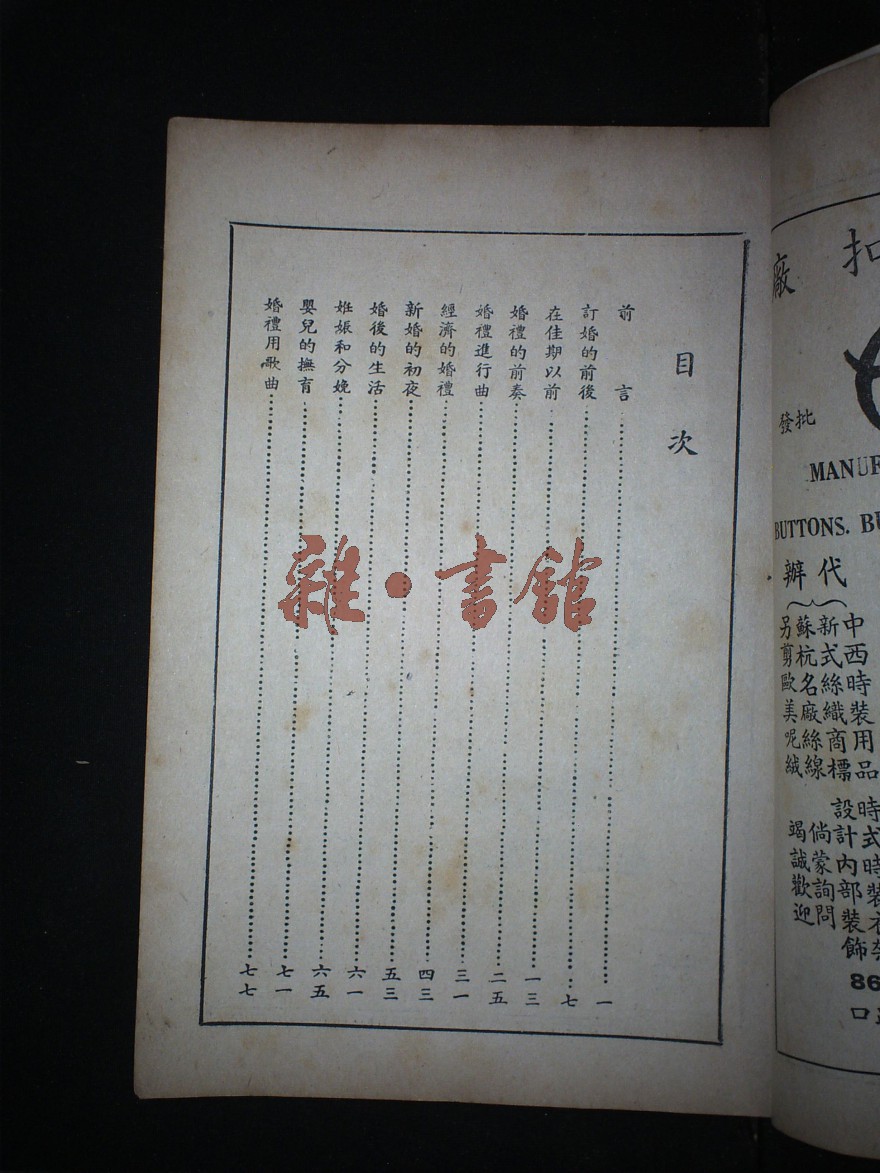 目次
前言……一
訂婚的前後……七
在佳期以前……一三
婚禮的前奏……二五
婚禮進行曲……三一
經濟的婚禮……四三
新婚的初夜……五三
婚後的生活……六一
姙娠和分娩……六五
嬰兒的撫育……七一
婚禮用歌曲……七七
雜·書館
扣廠
批發
MANUF
BUTTONS. BU
代辦
中西時裝用品
新式絲織商標
蘇杭名廠絲線
另剪歐美呢絨
時式時裝衣
設計內部裝飾
倘蒙詢問
竭誠歡迎
86
口